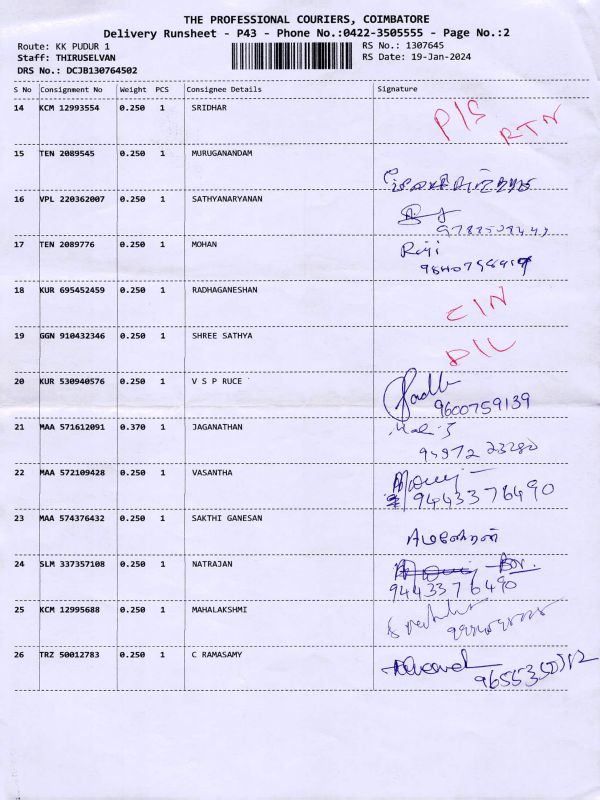 THE PROFESSIONAL COURIERS, COIMBATORE
Delivery Runsheet - P43 - Phone No.:0422-3505555 - Page No.:2
Route: KK PUDUR 1 RS No.: 1307645
Staff: THIRUSELVAN RS Date: 19-Jan-2024
DRS No.: DCJB130764502
S No Consignment No Weight PCS Consignee Details Signature
14 KCM 12993554 0.250 1 SRIDHAR P/S RTN
15 TEN 2089545 0.250 1 MURUGANANDAM
16 VPL 220362007 0.250 1 SATHYANARYANAN
17 TEN 2089776 0.250 1 MOHAN
18 KUR 695452459 0.250 1 RADHAGANESHAN C/N
19 GGN 910432346 0.250 1 SHREE SATHYA D/L
20 KUR 530940576 0.250 1 V S P RUCE
9600759139
21 MAA 571612091 0.370 1 JAGANATHAN
22 MAA 572109428 0.250 1 VASANTHA
9443376490
23 MAA 574376432 0.250 1 SAKTHI GANESAN
24 SLM 337357108 0.250 1 NATRAJAN
9443376490
25 KCM 12995688 0.250 1 MAHALAKSHMI
26 TRZ 50012783 0.250 1 C RAMASAMY